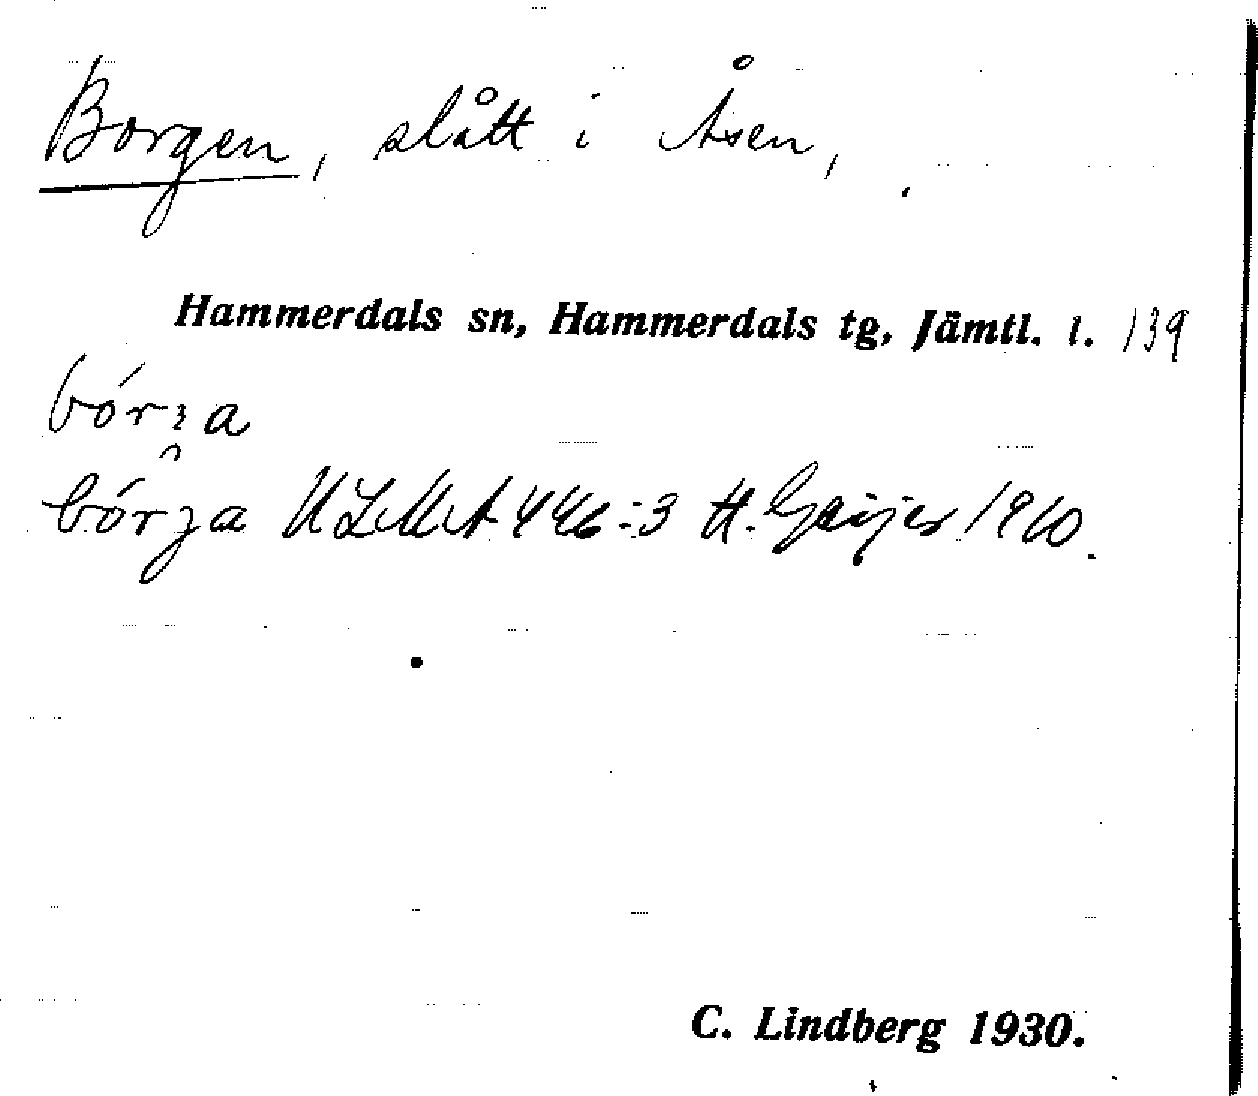 Borgen, slått i Åsen,
Hammerdals sn, Hammerdals tg, Jämtl. l. 139
bórʒa
bórʒa ULMA 446:3 H. Geijer 1910.
C. Lindberg 1930.